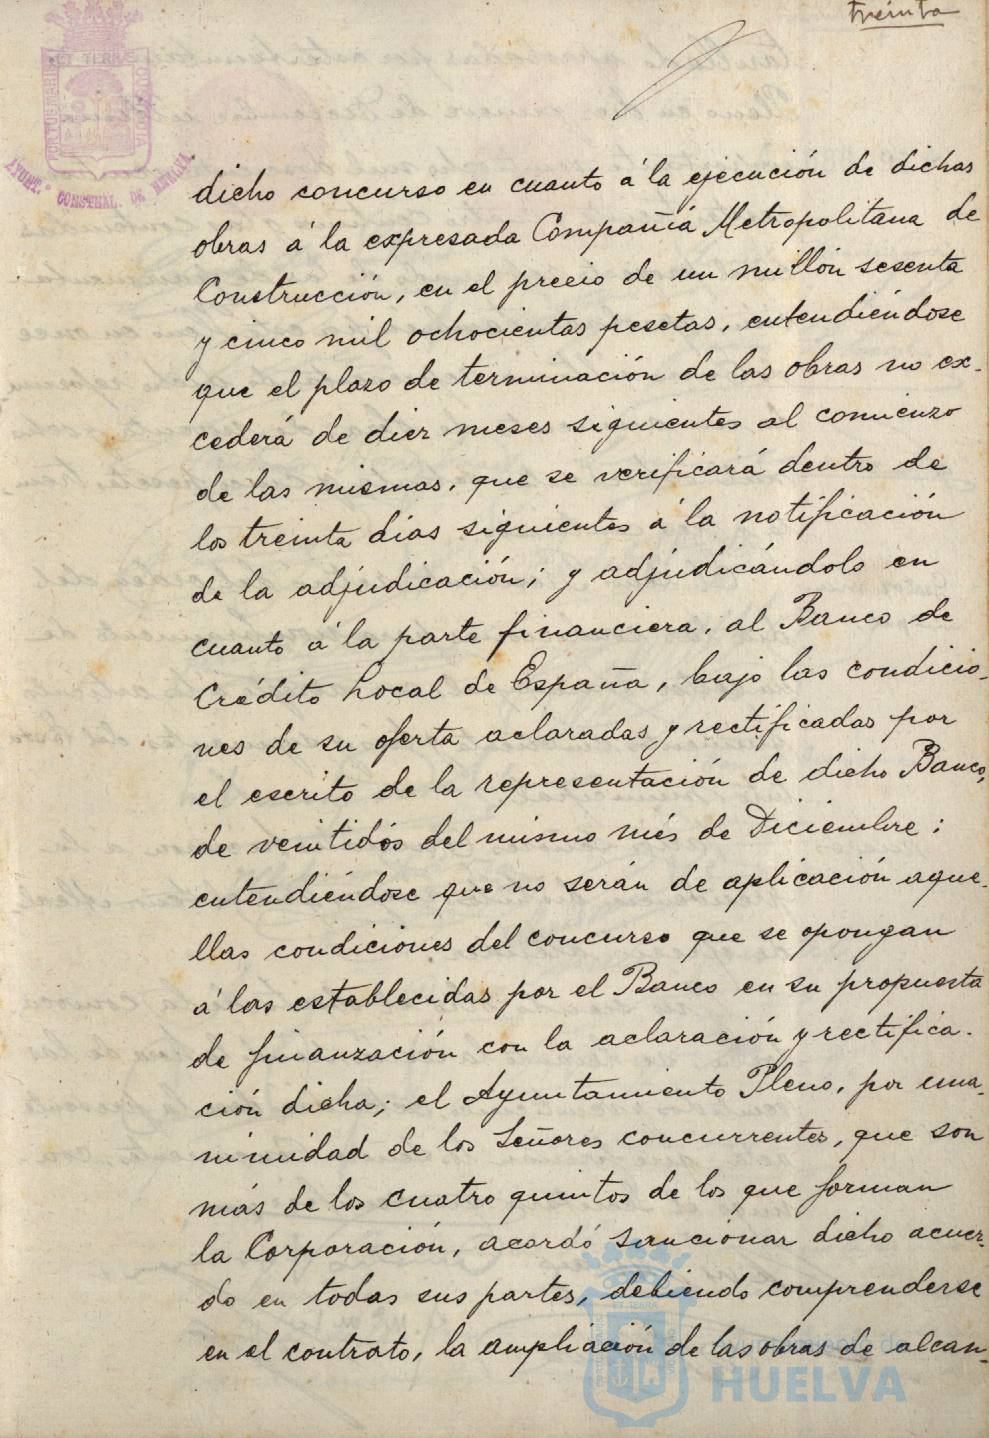 treinta
PORTUS MARIS
ET TERRÆ
CUSTODIA
AYUNT.º CONSTNAL. DE HUELVA
dicho concurso en cuanto á la ejecución de dichas
obras á la expresada Compañía Metropolitana de
Construcción, en el precio de un millón sesenta
y cinco mil ochocientas pesetas, entendiéndose
que el plazo de terminación de las obras no ex-
cederá de diez meses siguientes al comienzo
de las mismas, que se verificará dentro de
los treinta días siguientes á la notificación
de la adjudicación; y adjudicándolo en
cuanto á la parte financiera, al Banco de
Crédito Local de España, bajo las condicio-
nes de su oferta aclaradas y rectificadas por
el escrito de la representación de dicho Banco,
de veintidós del mismo més de Diciembre;
entendiéndose que no serán de aplicación aque-
llas condiciones del concurso que se opongan
á las establecidas por el Banco en su propuesta
de finanzación con la aclaración y rectifica-
ción dicha; el Ayuntamiento Pleno, por una-
nimidad de los Señores concurrentes, que son
más de los cuatro quintos de los que forman
la Corporación, acordó sancionar dicho acuer-
do en todas sus partes, debiendo comprenderse
en el contrato, la ampliación de las obras de alcan-
HUELVA